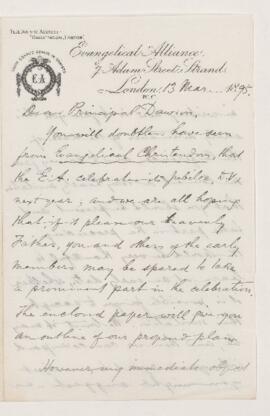 Evangelical Alliance,
7 Adam Street, Strand
London, 13 Mar. 1895.
W.C.
E A
Dear Principal Dawson,
You will doubtless have seen
from Evangelical Christendom, that
the E.A. celebrates its jubilee, D.V.
next year; and we are all hoping
that if it please our Heavenly
Father, you and others of the early
members may be spared to take
a prominent part in the celebration.
The enclosed paper will give you
an outline of our proposed plans.
However, my immediate object